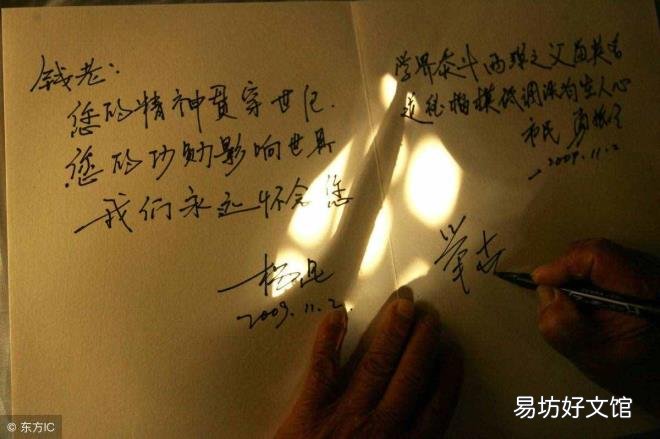 钱老:
您的精神贯穿世纪.
您的功勋影响世界
我们永远怀念您
杨昆
2009.11.2.
学界泰斗两弹之父垂英名
道德楷模低调淡泊生人心
市民
2009.11.2
© 东方IC
易坊好文馆